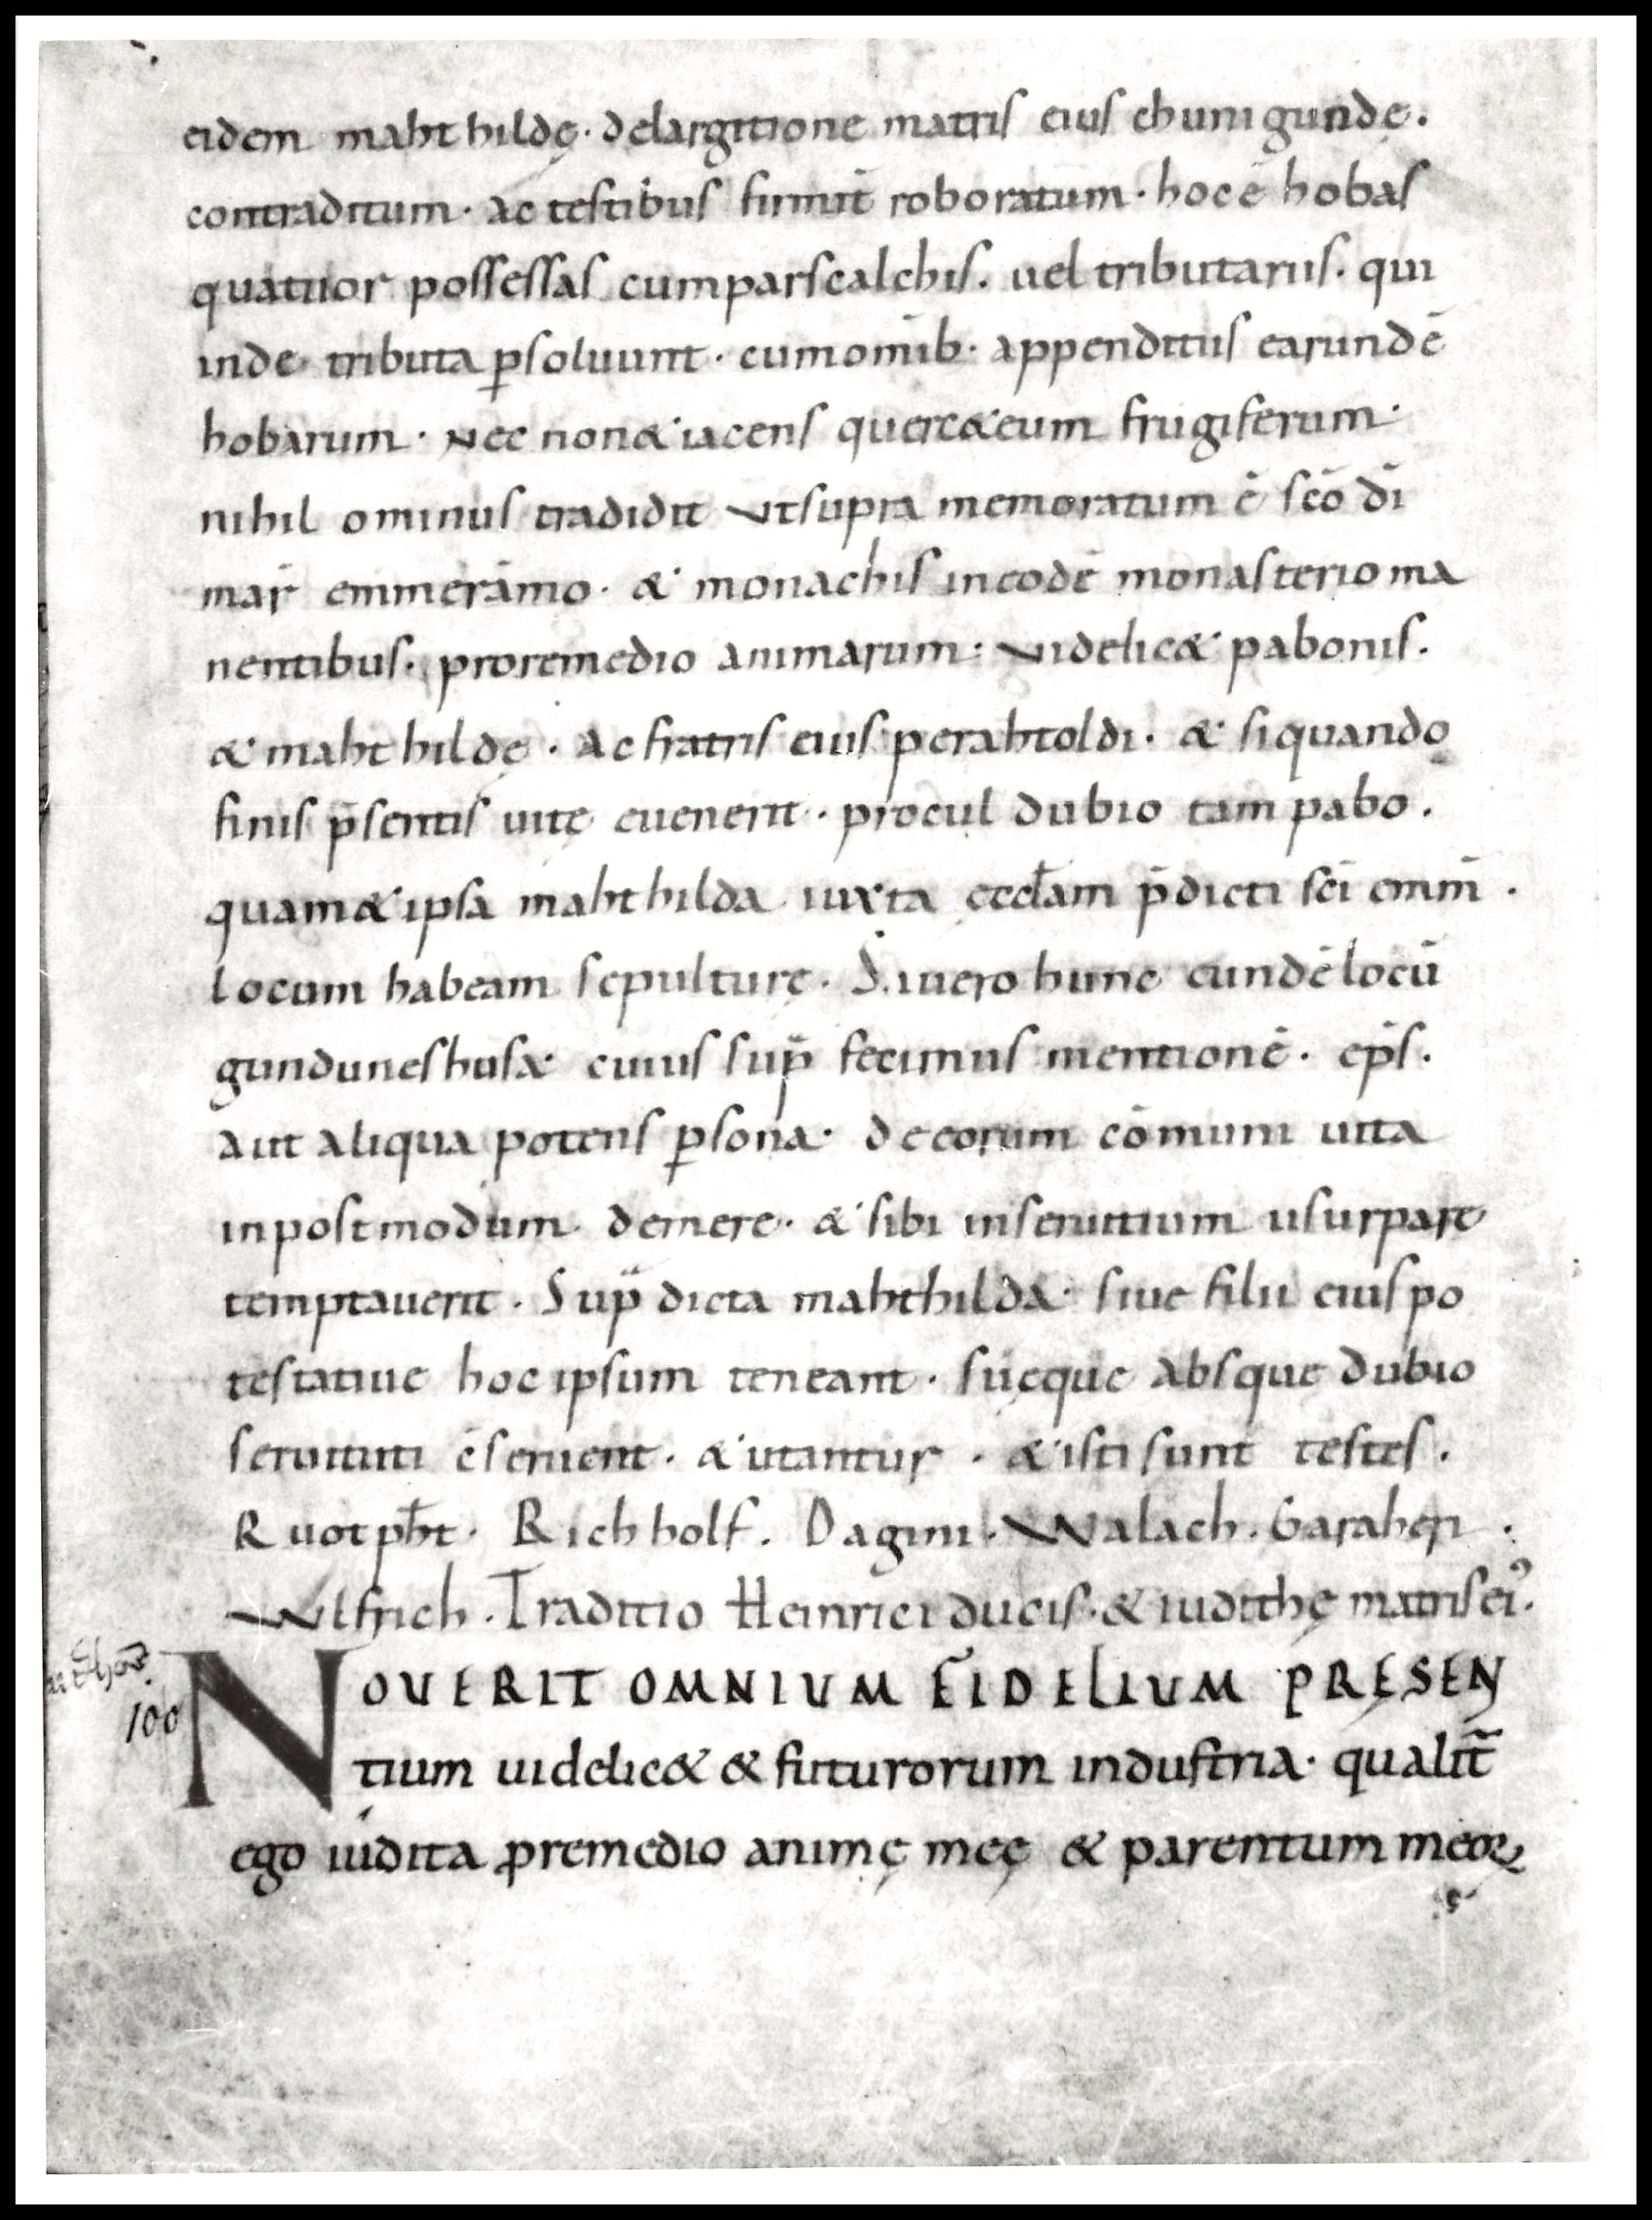 eidem mahthildę· delargitione matris eius chunigundę.
contraditum· ac testibus firmit̄ roboratum· hoc ē hobas
quatuor possessas cumparscalchis. uel tributariis. qui
inde tributa ꝑsoluunt· cumomīb· appenditiis earundē
hobarum· Nec non& iacens querc&eum frugiferum·
nihil ominus tradidit Vtsupra memoratum ē sc̄o dī
mar̄ emmerāmo· & monachis ineodē monasterio ma
nentibus· proremedio animarum· Videlic& pabonis.
& mahthildę· Ac fratris eius perahtoldi· & siquando
finis p̄sentis uitę euenerit· procul dubio tam pabo.
quam& ipsa mahthilda iuxta ęccłam p̄dicti sc̄i em̄m̄.
Locum habeam sepulturę· Siuero hunc eundē locū
gunduneshusæ cuius sup̄ fecimus mentionē· ep̄s.
Aut aliqua potens ꝑsona· de eorum cōmuni uita
inpostmodum demere· & sibi inseruitium usurpare
temptauerit· Sup̄ dicta mahthilda· siue filii eius po
testatiue hoc ipsum teneant· suęque absque dubio
seruituti ēseruent· & utantur· & isti sunt testes.
Ruotpħt· Richholf. Dagini· Walach. Garaheri.
Wlfrich. Traditio Heinrici ducis· & iudithę matris eiꝰ.
100
NOUERIT OMNIUM FIDELIUM PRĘSEN
tium uidelic& & futurorum industria· qualit̄
ego iudita ꝓremedio animę meę & parentum meoꝝ